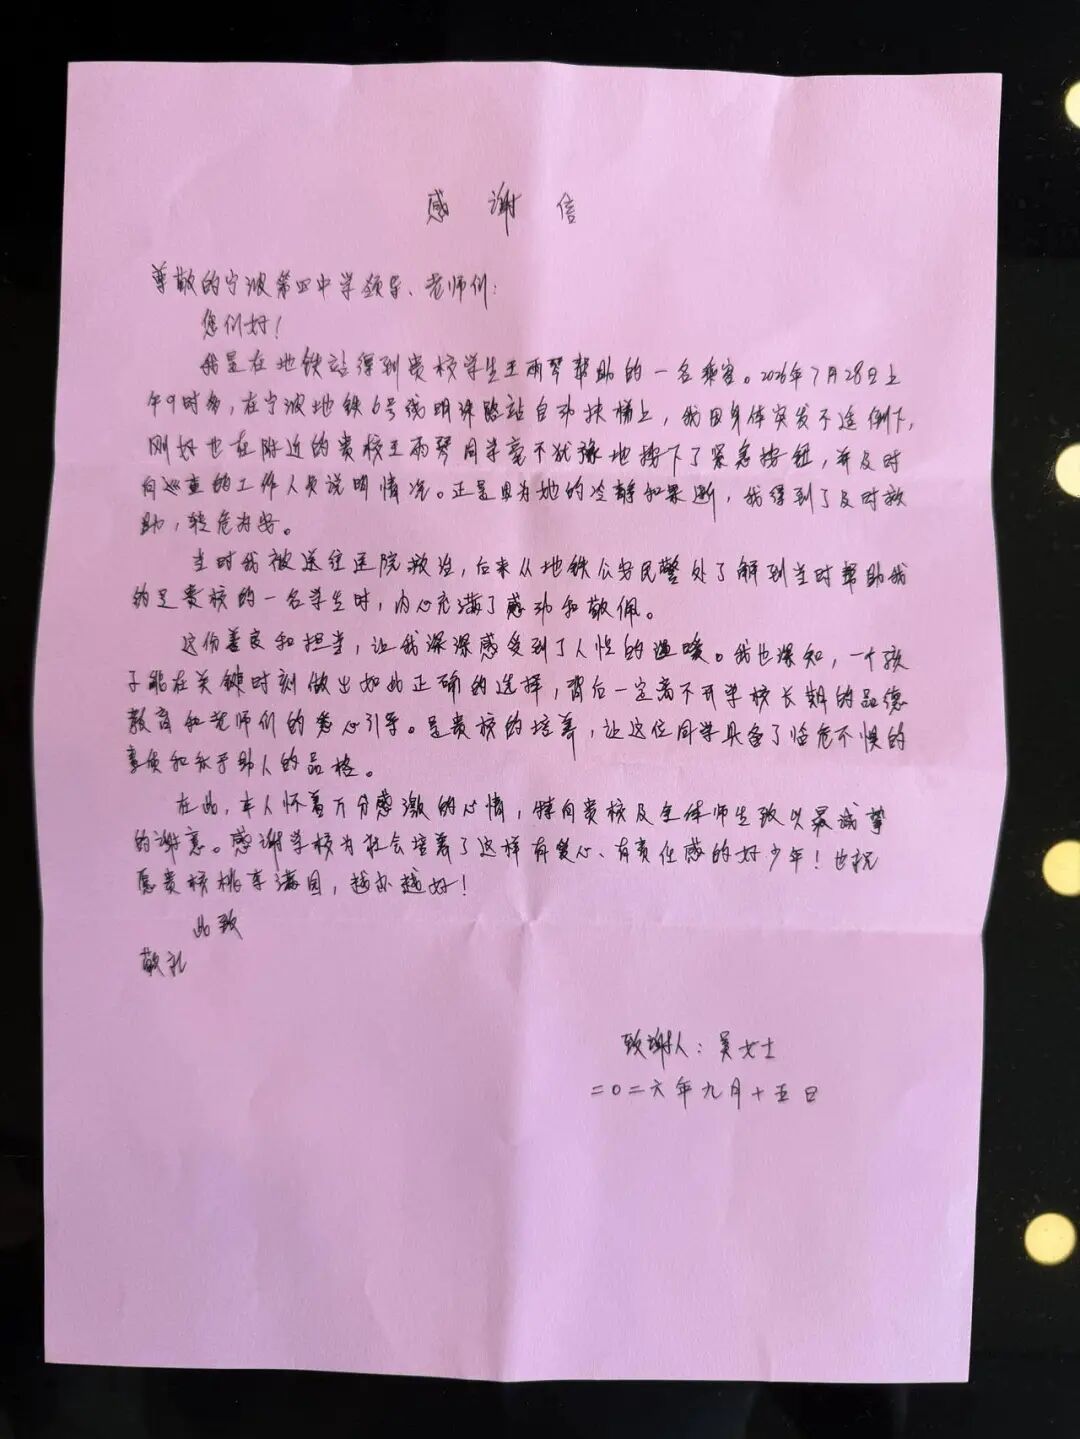 感谢信
尊敬的宁波第四中学领导、老师们:
您们好!
我是在地铁站得到贵校学生王雨琴帮助的一名乘客。2026年7月28日上
午9时多,在宁波地铁6号线明珠路站自动扶梯上,我因身体突发不适倒下,
刚好也在附近的贵校王雨琴同学毫不犹豫地按下了紧急按钮,并及时
向巡查的工作人员说明情况。正是因为她的冷静和果断,我得到了及时救
助,转危为安。
当时我被送往医院救治,后来从地铁公安民警处了解到当时帮助我
的是贵校的一名学生时,内心充满了感动和敬佩。
这份善良和担当,让我深深感受到了人性的温暖。我也深知,一个孩
子能在关键时刻做出如此正确的选择,背后一定离不开学校长期的品德
教育和老师们的悉心引导。是贵校的培养,让这位同学具备了临危不惧的
素质和乐于助人的品格。
在此,本人怀着万分感激的心情,特向贵校及全体师生致以最诚挚
的谢意。感谢学校为社会培养了这样有爱心、有责任感的好少年!也祝
愿贵校桃李满园,越办越好!
此致
敬礼
致谢人:吴女士
二〇二六年九月十五日